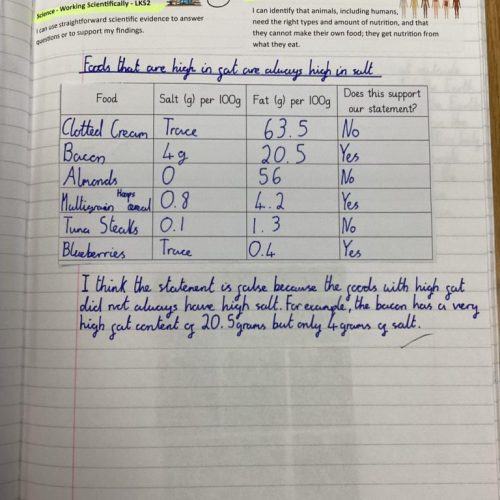 Science - Working Scientifically - LKS2
I can use straightforward scientific evidence to answer
questions or to support my findings.
I can identify that animals, including humans,
need the right types and amount of nutrition, and that
they cannot make their own food; they get nutrition from
what they eat.
Foods that are high in fat are always high in salt
Food Salt (g) per 100g Fat (g) per 100g Does this support our statement?
Clotted Cream Trace 63.5 No
Bacon 4g 20.5 Yes
Almonds 0 56 No
Multigrain Hoops cereal 0.8 4.2 Yes
Tuna Steaks 0.1 1.3 No
Blueberries Trace 0.4 Yes
I think the statement is false because the foods with high fat
did not always have high salt. For example, the bacon has a very
high fat content of 20.5grams but only 4 grams of salt.